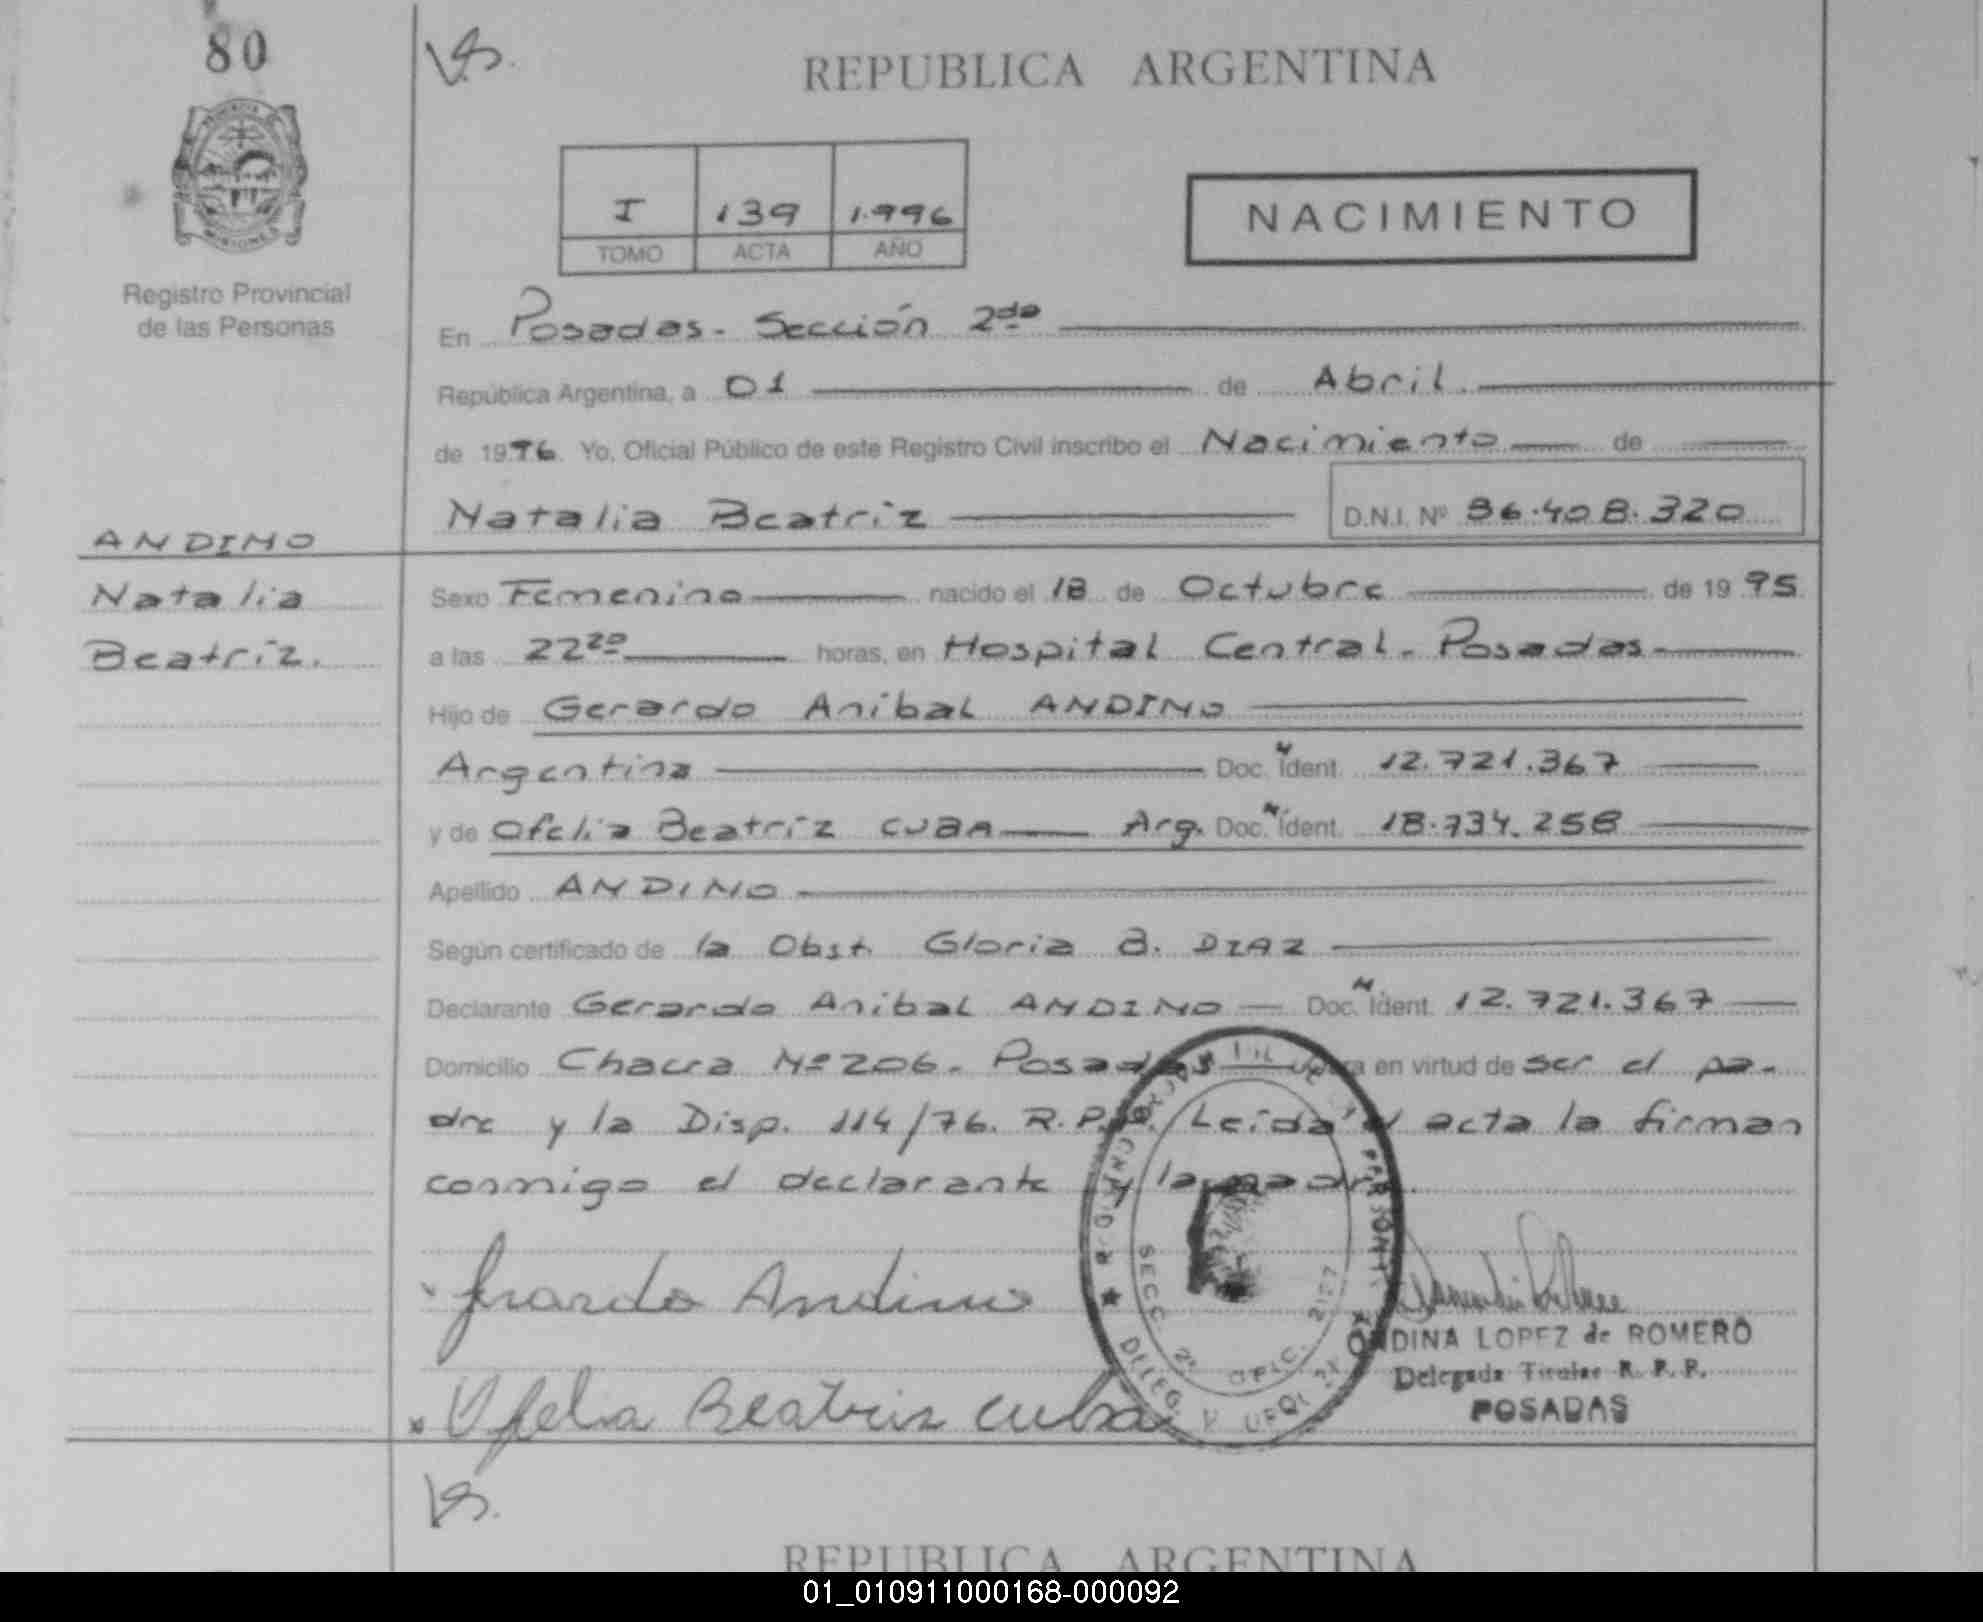 80
REPUBLICA ARGENTINA
PROVINCIA DE MISIONES
I 139 1.996
TOMO ACTA AÑO
NACIMIENTO
Registro Provincial
de las Personas
En Posadas - Sección 2da
República Argentina, a 01 de Abril
de 1996. Yo, Oficial Público de este Registro Civil inscribo el Nacimiento de
Natalia Beatriz D.N.I. Nº 36.408.320
ANDINO
Natalia
Beatriz.
Sexo Femenino nacido el 18 de Octubre de 19 95
a las 22 20 horas, en Hospital Central - Posadas
Hijo de Gerardo Anibal ANDINO
Argentina Doc. Ident. 12.721.367
y de Ofelia Beatriz CUBA Arg. Doc. Ident. 18.734.258
Apellido ANDINO
Según certificado de la Obst. Gloria B. DIAZ
Declarante Gerardo Anibal ANDINO Doc. Ident. 12.721.367
Domicilio Chacra Nº 206 - Posadas en virtud de ser el pa-
dre y la Disp. 114/76. R.P.P. Leída el acta la firman
conmigo el declarante y la madre.
Gerardo Andino
Ofelia Beatriz Cuba
SECC 2ª OFIC. 2127
ONDINA LOPEZ de ROMERO
Delegada Titular R. P. P.
POSADAS
REPUBLICA ARGENTINA
01_010911000168-000092